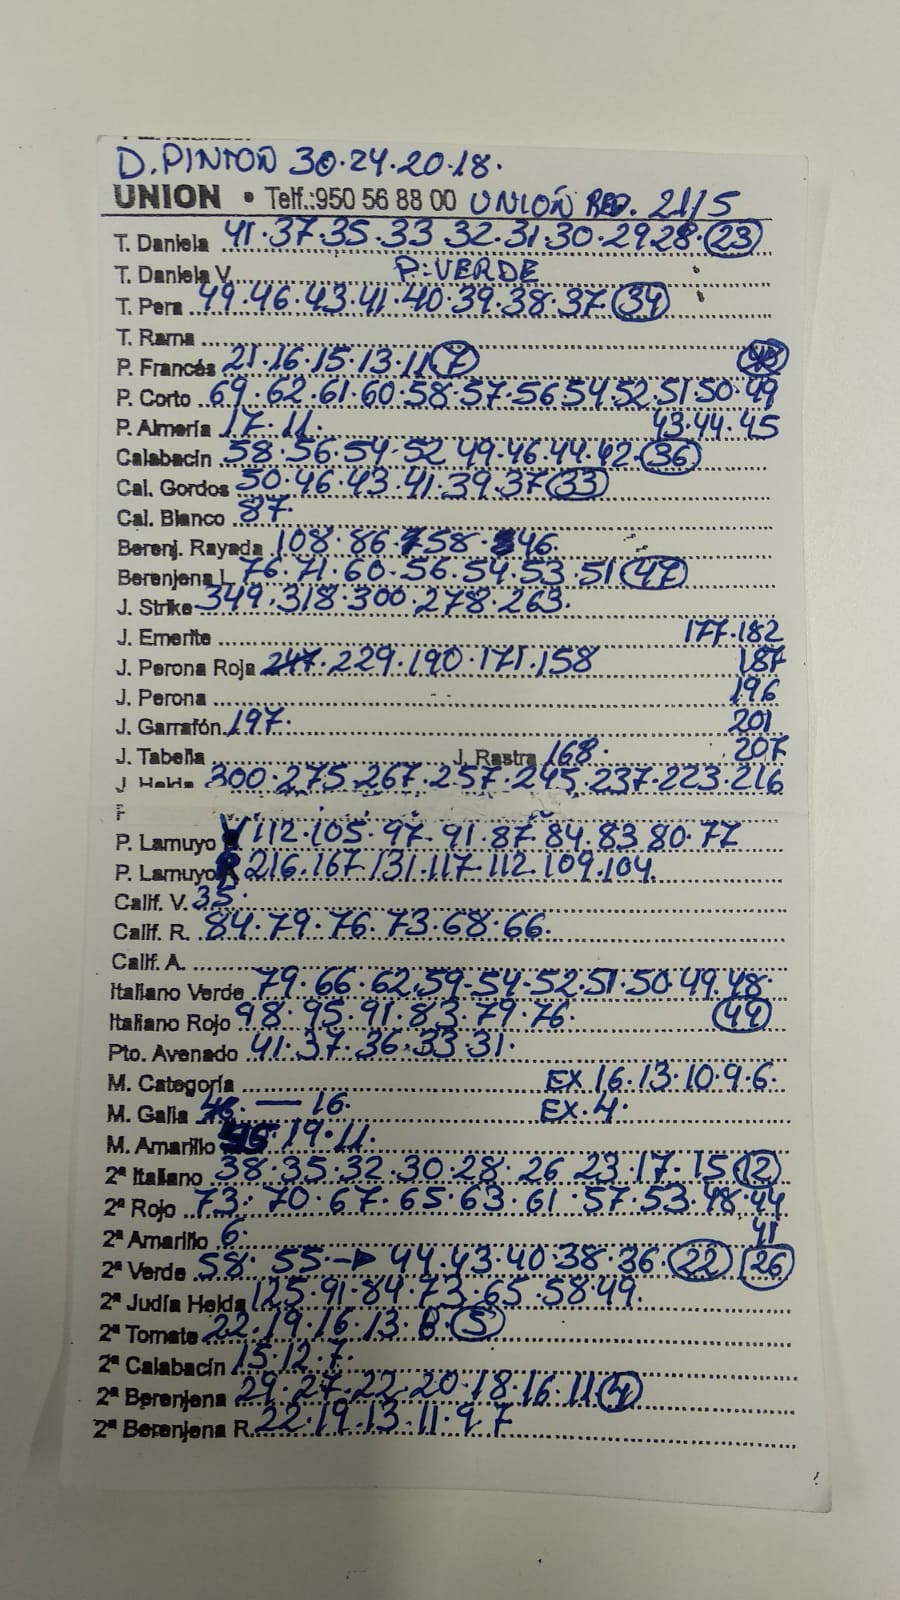 D. PINTON 30·24·20·18·
UNION • Telf.:950 56 88 00 UNIÓN RED. 21/5
T. Daniela 41·37·35·33 32·31·30·29 28·23
T. Daniela V. P. VERDE
T. Pera 49·46·43·41·40·39·38·37 34
T. Rama
P. Francés 21·16·15·13·11 7
P. Corto 69·62·61·60·58·57·56 54·52·51·50·49
P. Almería 17·11· 43·44·45
Calabacín 58·56·54·52 49·46·44·42·36
Cal. Gordos 50·46·43·41·39·37 33
Cal. Blanco 87·
Berenj. Rayada 108·86· 58· 46·
Berenjena L 76·71·60·56·54·53·51 47
J. Strike 349·318·300·278·263·
J. Emerite 177·182
J. Perona Roja 247·229·190·171·158 187
J. Perona 196
J. Garrafón 197· 201
J. Tabella J. Rastra 168· 207
J Helda 300·275·267·257·245·237·223·216
P. Lamuyo V 112·105·97·91·87·84·83 80·77
P. Lamuyo R 216·167·131·117·112·109·104
Calif. V. 35·
Calif. R. 84·79·76·73·68·66·
Calif. A.
Italiano Verde 79·66·62·59·54·52·51·50·49·48·
Italiano Rojo 98·95·91·83·79·76· 44
Pto. Avenado 41·37·36·33·31·
M. Categoría EX 16·13·10·9·6·
M. Galia — 16· EX·4·
M. Amarillo 19·11·
2ª Italiano 38·35·32·30·28·26 23·17·15 12
2ª Rojo 73·70·67·65·63·61·57·53·48·44
2ª Amarillo 6· 41
2ª Verde 58·55→44·43·40·38·36 22 26
2ª Judía Helda 125·91·84·73·65·58·49·
2ª Tomate 22·19·16·13·8·5
2ª Calabacín 15·12·7·
2ª Berenjena 29·27·22·20·18·16·11 4
2ª Berenjena R. 22·19·13·11·9·7